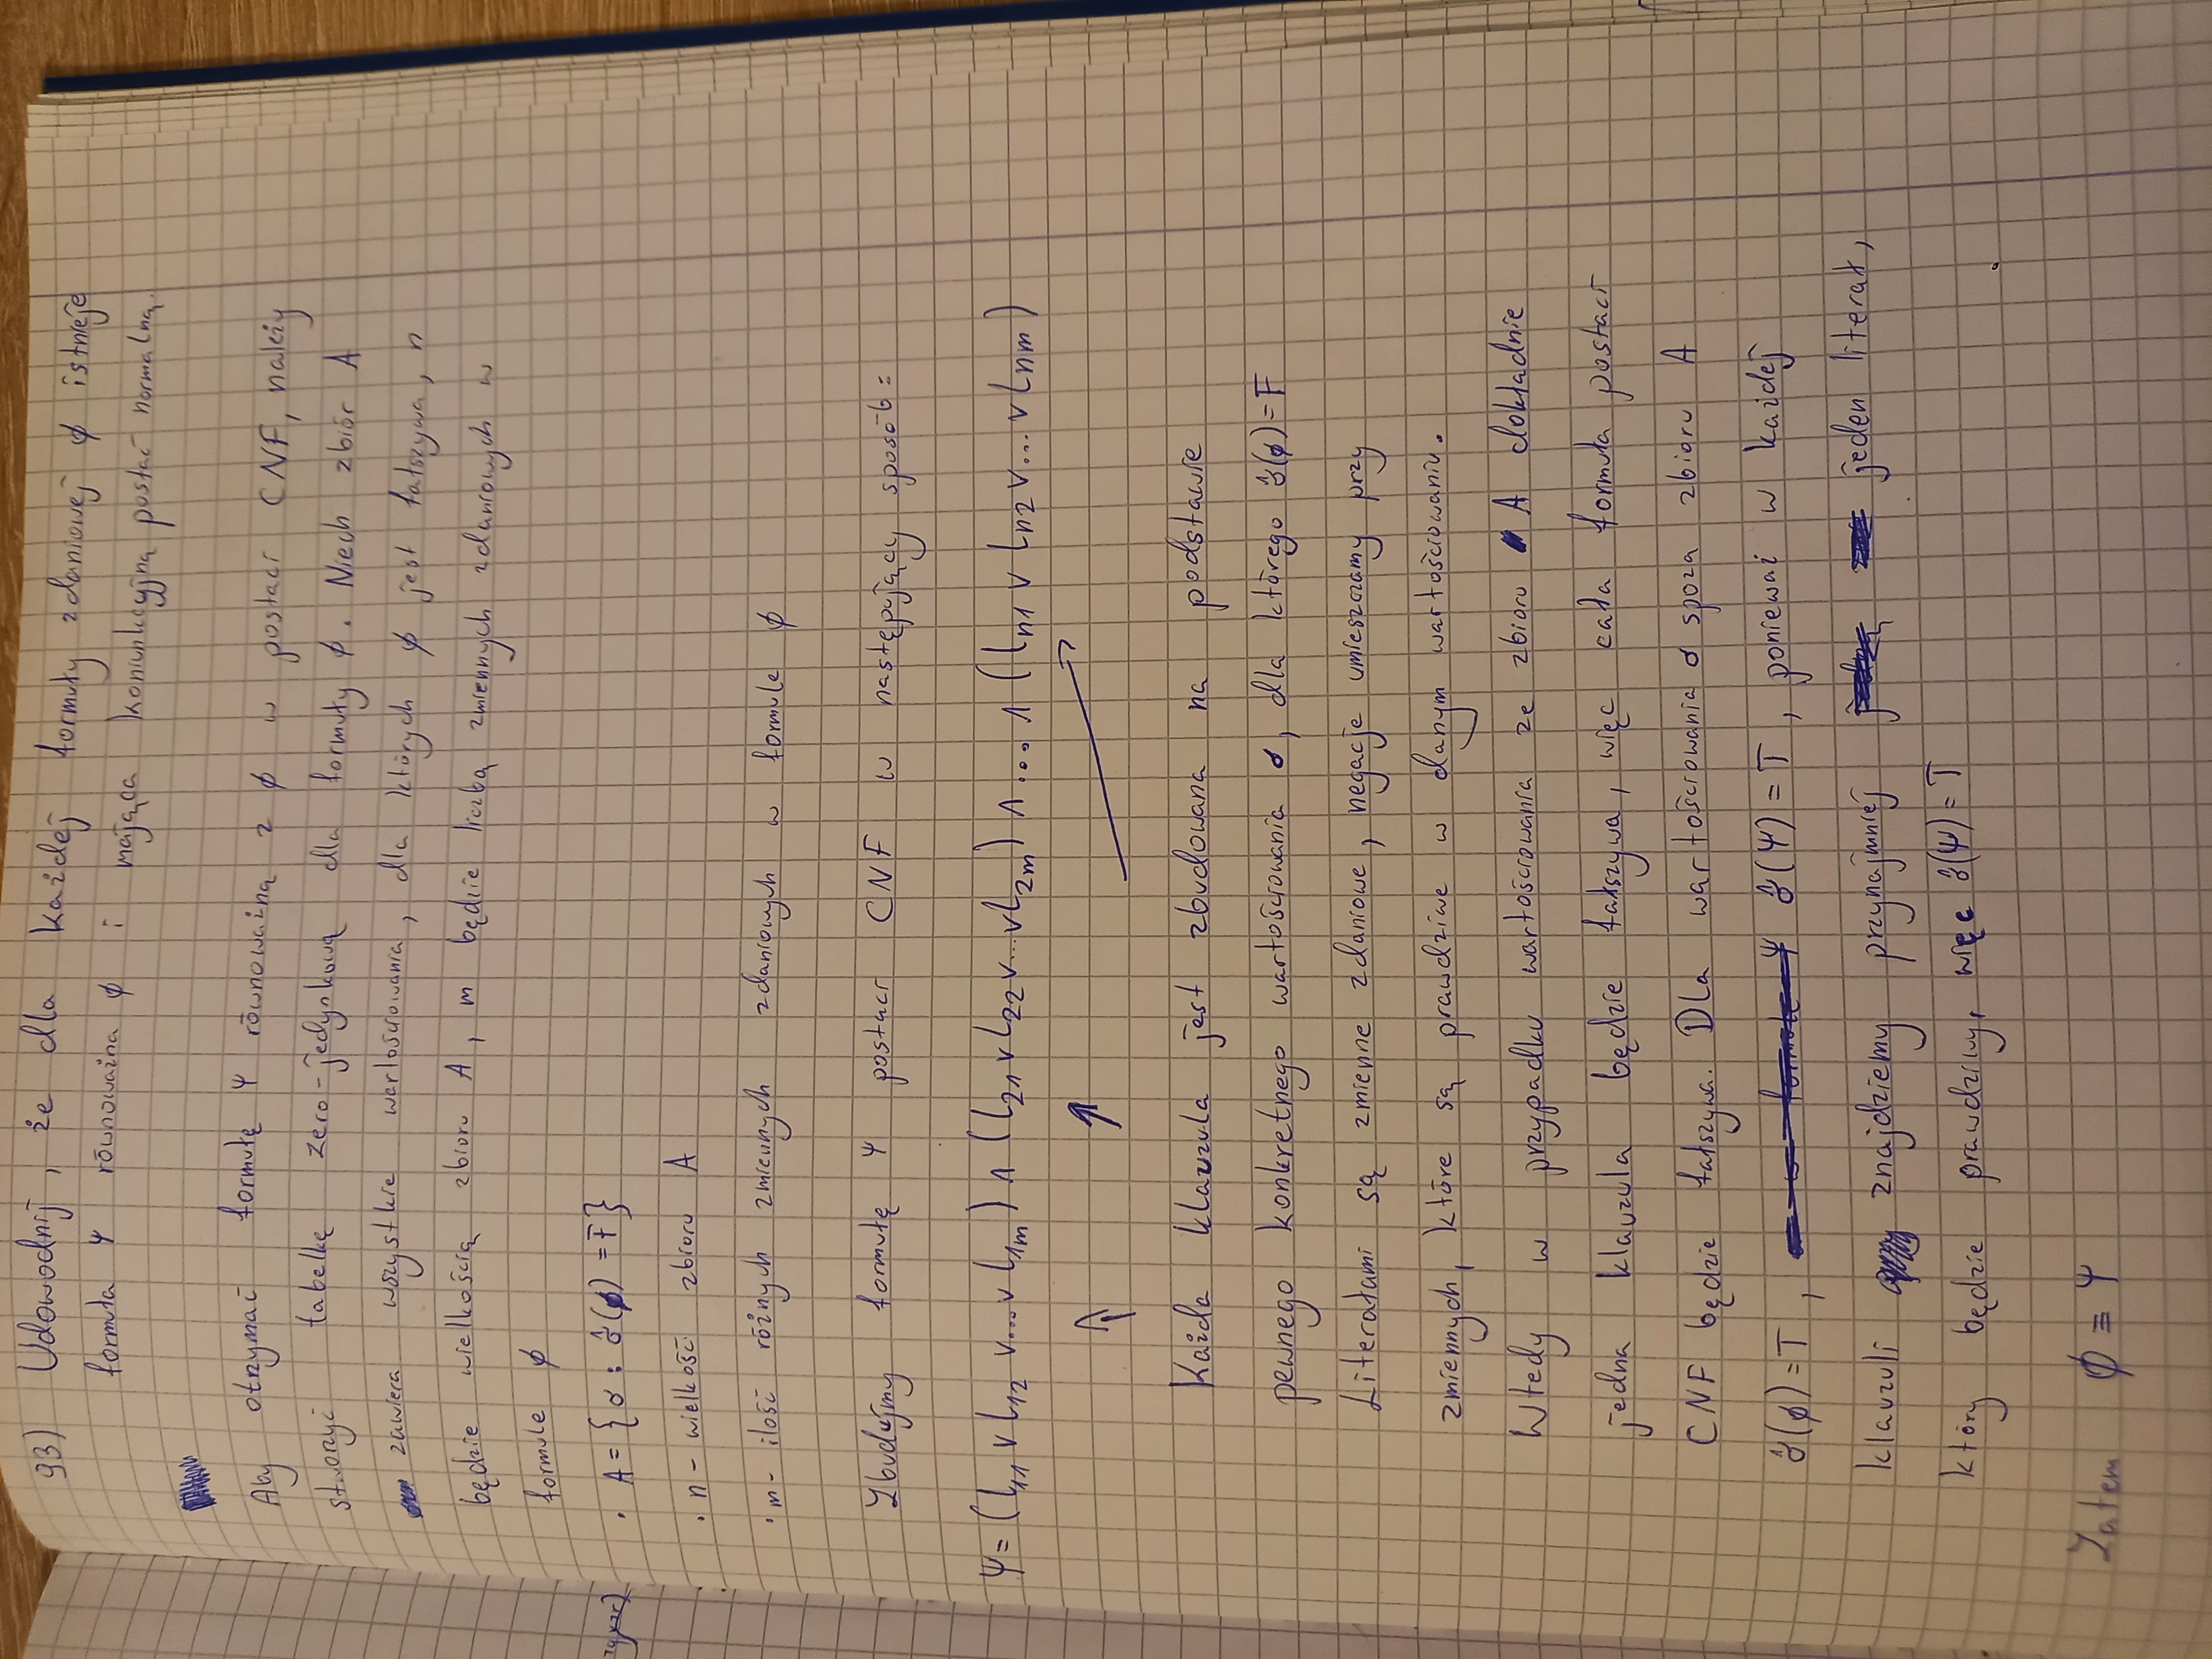 93) Udowodnij, że dla każdej formuły zdaniowej φ istnieje
formuła ψ równoważna φ i mająca koniunkcyjną postać normalną.
Aby otrzymać formułę ψ równoważną z φ w postaci CNF, należy
stworzyć tabelkę zero-jedynkową dla formuły φ. Niech zbiór A
zawiera wszystkie wartościowania, dla których φ jest fałszywa, n
będzie wielkością zbioru A, m będzie liczbą zmiennych zdaniowych w
formule φ
• A = {σ : σ̂(φ) = F}
• n - wielkość zbioru A
• m - ilość różnych zmiennych zdaniowych w formule φ
Zbudujmy formułę ψ postaci CNF w następujący sposób:
ψ = (l₁₁ ∨ l₁₂ ∨ ... ∨ l₁ₘ) ∧ (l₂₁ ∨ l₂₂ ∨ ... ∨ l₂ₘ) ∧ ... ∧ (lₙ₁ ∨ lₙ₂ ∨ ... ∨ lₙₘ)
Każda klauzula jest zbudowana na podstawie
pewnego konkretnego wartościowania σ, dla którego σ̂(φ) = F
Literałami są zmienne zdaniowe, negacje umieszczamy przy
zmiennych, które są prawdziwe w danym wartościowaniu.
Wtedy w przypadku wartościowania ze zbioru A dokładnie
jedna klauzula będzie fałszywa, więc cała formuła postaci
CNF będzie fałszywa. Dla wartościowania σ spoza zbioru A
σ̂(φ) = T, w formule ψ σ̂(ψ) = T, ponieważ w każdej
klauzuli znajdziemy przynajmniej jedną jeden literał,
który będzie prawdziwy, więc σ̂(ψ) = T
Zatem φ ≡ ψ